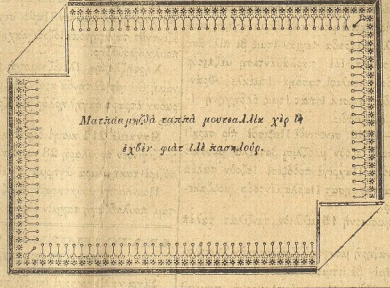 Ματπάαμηζδὰ ταππὰ μουτεαλλὶκ χὲρ ἲς
ἐχβὲν φιὰτ ἰλὲ πασηλούρ.